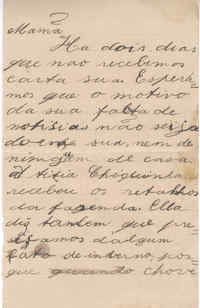 Mamã
Ha dois dias
que não recebemos
carta sua. Espera=
mos que o motivo
da sua falta de
notisias não seija
doença sua, nem de
ninguem de casa
A titia Chiquinha
recebeu os retalhos
da fazenda. Ella
diz tambem que pre=
sisamos dalgum
fato de inverno, por=
que quando chove